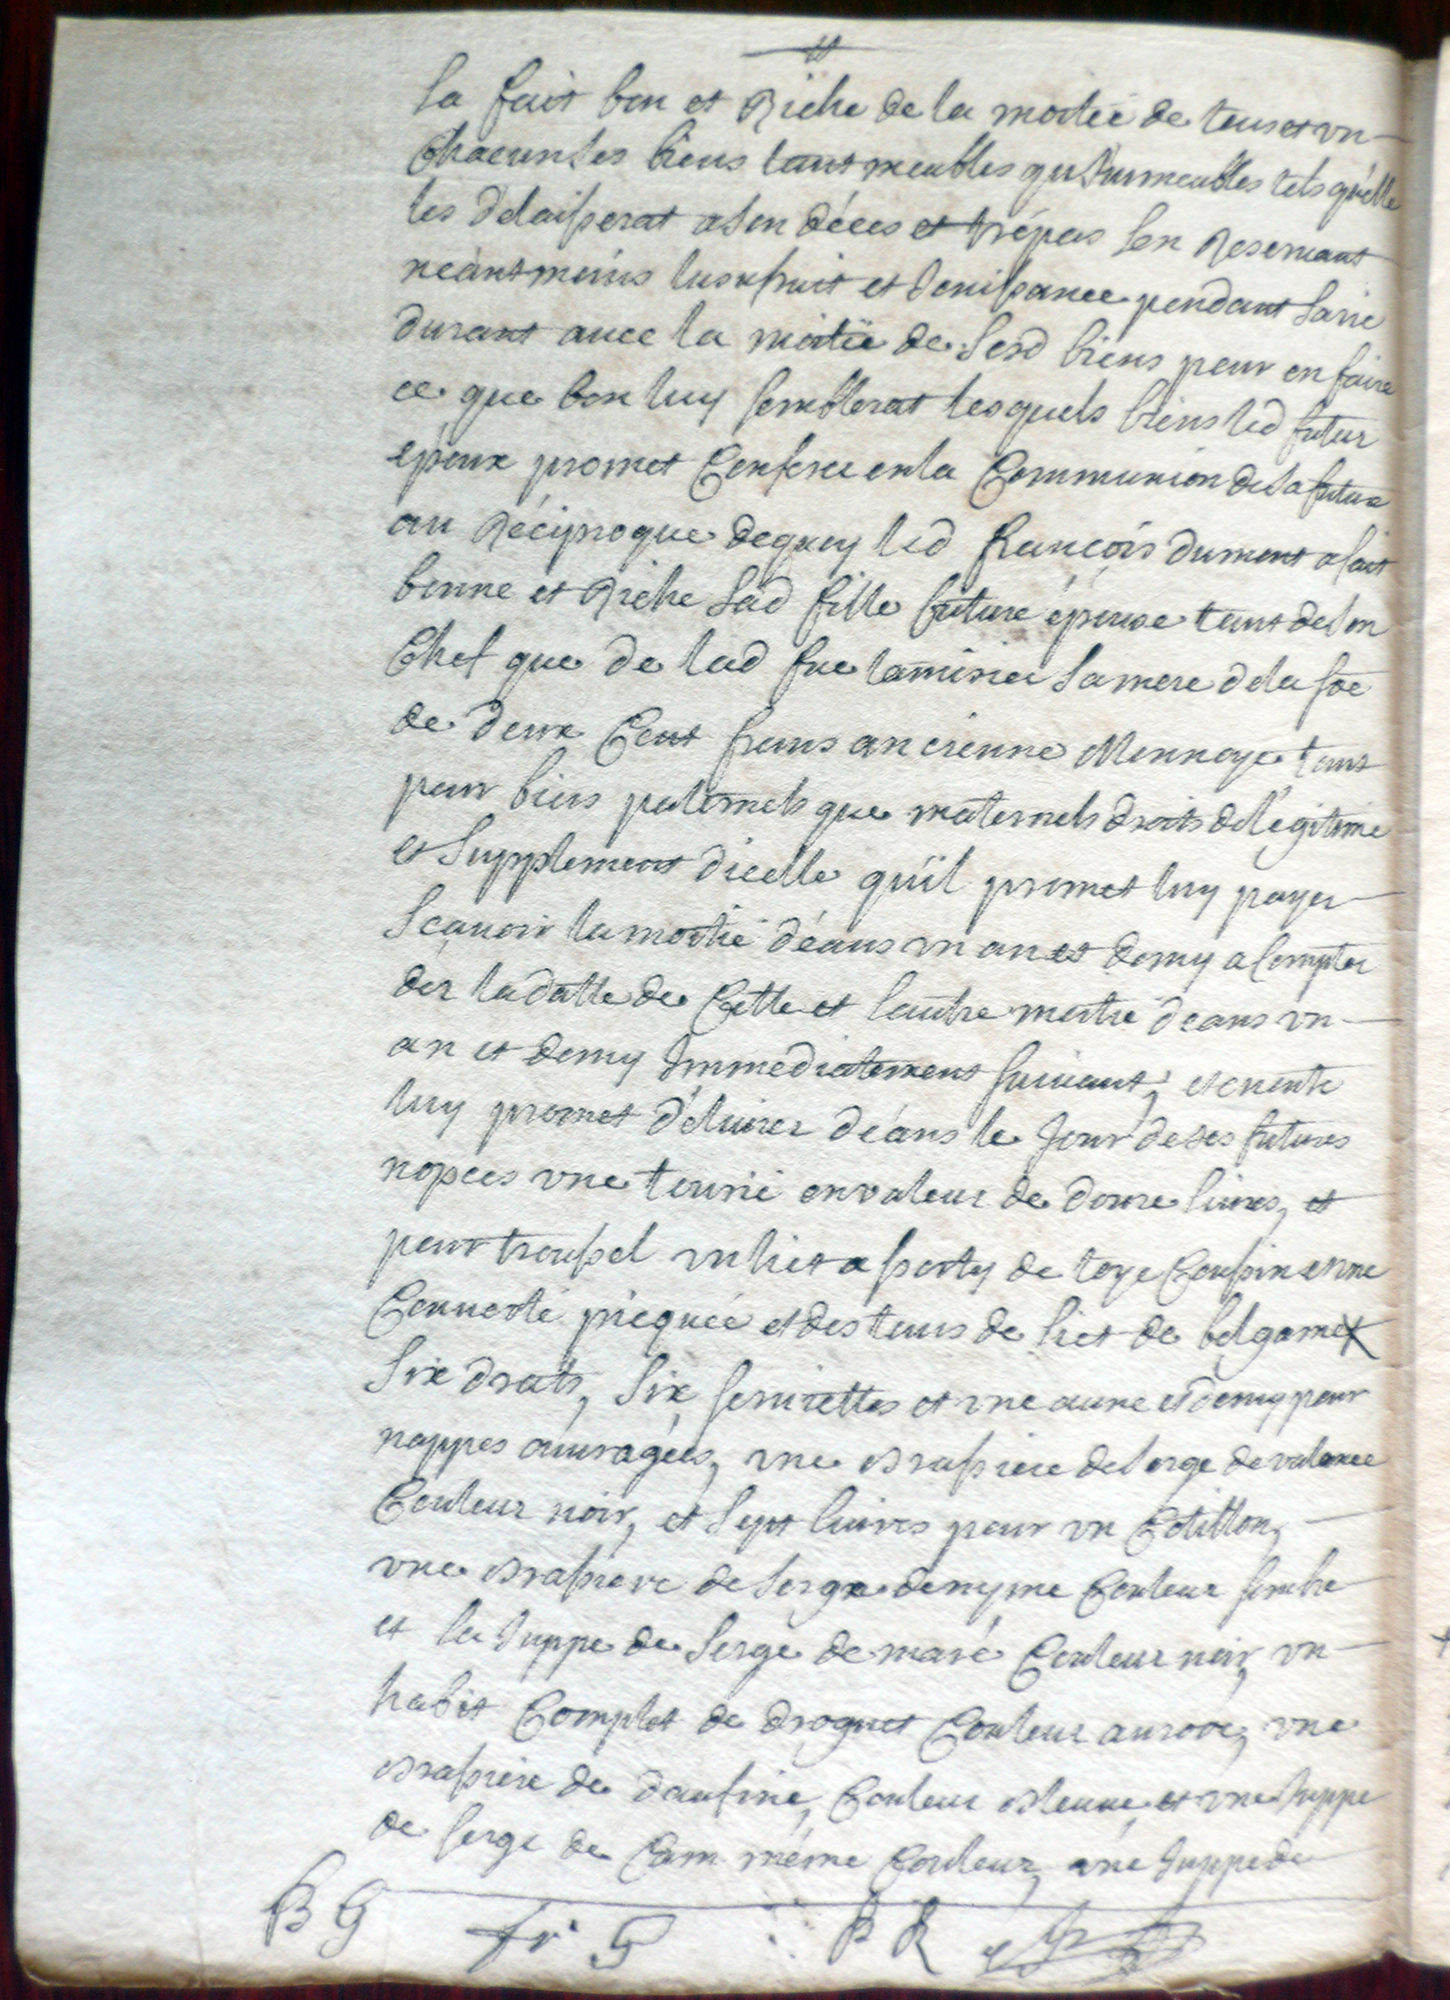 la fait bon et Riche de la moitié de tous et vn
Chacun ses biens tant meubles qu'Immeubles tels qu'elle
les delaisserat a son déces et trépas sen Reservant
neàntmoins lusufruit et Jouissance pendant sa vie
durant avec la moitië de sesd biens pour en faire
ce que bon luy semblerat lesquels biens led futur
epoux promet Conferer en la Communion de sa future
au Réciproque dequoy led francois dumont a fait
bonne et Riche sad fille future épouse tant de son
Chef que de lad fue sa mere de la soe
de deux Cent frans ancienne Monnoye tant
pour biens paternels que maternels droits de legitime
et supplement dicelle qu'il promet luy payer
Sçavoir la moitie déans vn an et demy a Compter
dez la datte de Cette et lautre moitie deans vn
an et demy Immediatement suivant, et en outre
luy promet délivrer déans le Jour de ses futures
nopces vne en valeur de douze livres, et
pour troussel vn lict assorty de toye Coussin et vne
Couverte picquée et des tours de lict de belgame
Six draps, Six serviettes et vne aune et demy pour
nappes ouuragées, vne Brassiere de serge de valance
Couleur noir, et Sept livres pour vn Cotillon,
vne Brassiere de serge denyme Couleur sombre
et la Juppe de Serge de Couleur noir, vn
habit Complet de droguet Couleur aurore, vne
Brassiere de daufine, Couleur Bleuue et vne Juppe
de serge de Cam même Couleur, vne Juppe de
B G fr G B R